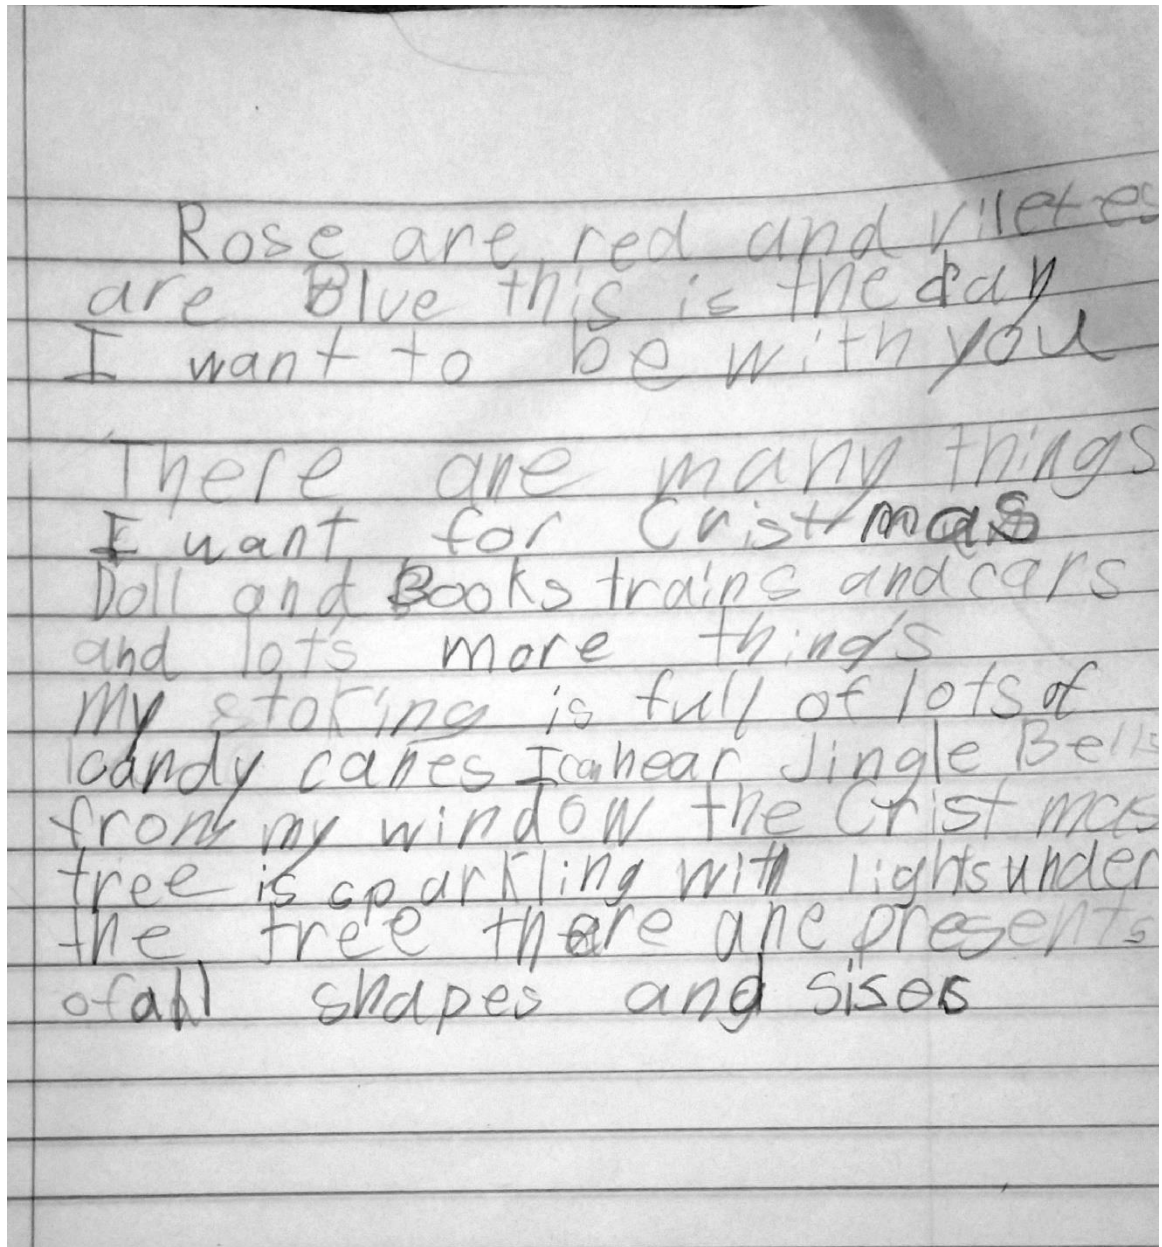 Rose are red and viletes
are Blue this is the day
I want to be with you
There are many things
I want for Cristmas
Doll and Books trains and cars
and lots more things
my stoking is full of lots of
candy canes I can hear Jingle Bells
from my window the Crist mas
tree is sparkling with lights under
the tree there are presents
of all shapes and sises